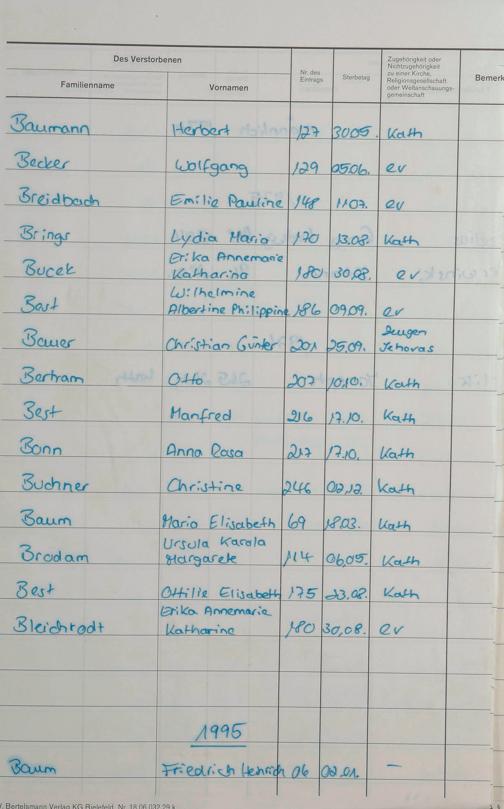 Des Verstorbenen
Familienname Vornamen Nr. des Eintrags Sterbetag Zugehörigkeit oder Nichtzugehörigkeit zu einer Kirche, Religionsgesellschaft oder Weltanschauungs-gemeinschaft Bemerk
Baumann Herbert 127 30.05. Kath
Becker Wolfgang 129 05.06. ev
Breidbach Emilie Pauline 148 11.07. ev
Brings Lydia Maria 170 13.08. Kath
Erika Annemarie
Bucek Katharina 180 30.08. ev
Wilhelmine
Bast Albertine Philippine 186 09.09. ev
Zeugen
Bauer Christian Günter 201 25.09. Jehovas
Bertram Otto 207 10.10. Kath
Best Manfred 216 17.10. Kath
Bonn Anna Rosa 217 17.10. Kath
Buchner Christine 246 02.12. Kath
Baum Maria Elisabeth 69 18.03. Kath
Ursula Karola
Brodam Margarete 114 06.05. Kath
Best Ottilie Elisabeth 175 23.08. Kath
Erika Annemarie
Bleichrodt Katharine 180 30.08. ev
1995
Baum Friedrich Heinrich 06 02.01. —
W. Bertelsmann Verlag KG Bielefeld, Nr. 18.06.032.29 k